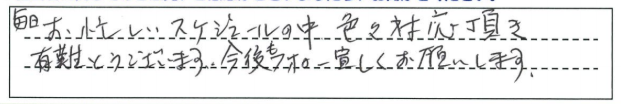 毎日お忙しいスケジュールの中 色々対応頂き
有難とうございます。今後もフォロー宜しくお願いします。